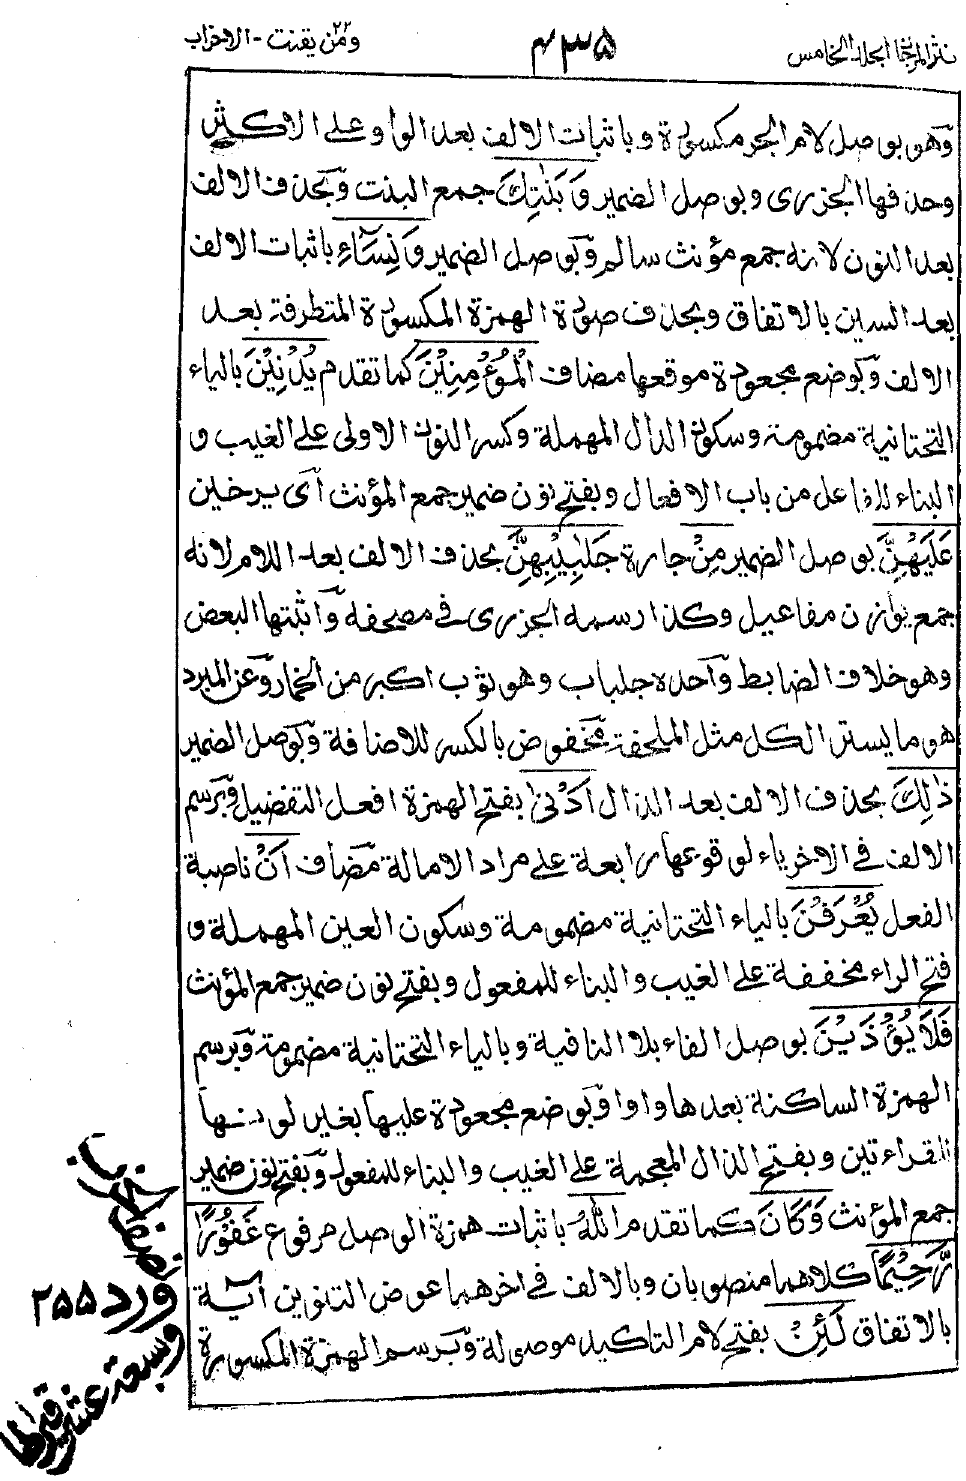 نثر المرجان الجلد الخامس
٤٣٥
ومن يقنت ٢٢ - الاحزاب
وهو بوصل لام الجر مكسورة وباثبات الالف بعد الواو على الاكثر
وحذفها الجزرى وبوصل الضمير وَبَنٰتِكَ جمع البنت وبحذف الالف
بعد النون لانه جمع مؤنث سالم وبوصل الضمير وَنِسَآءِ باثبات الالف
بعد السين بالاتفاق وبحذف صورة الهمزة المكسورة المتطرفة بعد
الالف وبوضع مجعودة موقعها مضاف الْمُؤْمِنِيْنَ كما تقدم يُدْنِيْنَ بالياء
التحتانية مضمومة وسكون الدال المهملة وكسر النون الاولى على الغيب و
البناء للفاعل من باب الافعال وبفتح نون ضمير جمع المؤنث اى يرخين
عَلَيْهِنَّ بوصل الضمير مِنْ جارة جَلَبِيْبِهِنَّ بحذف الالف بعد اللام لانه
جمع يوازن مفاعيل وكذا رسمه الجزرى فى مصحفه واثبتها البعض
وهو خلاف الضابط واحده جلباب وهو ثوب اكبر من الخمار وعن المبرد
هو ما يستر الكل مثل الملحفة مخفوض بالكسر للاضافة وبوصل الضمير
ذٰلِكَ بحذف الالف بعد الذال اَدْنٰى بفتح الهمزة افعل التفضيل وبرسم
الالف فى الاخر ياء لوقوعها رابعة على مراد الامالة مضاف اَنْ ناصبة
الفعل يُعْرَفْنَ بالياء التحتانية مضمومة وسكون العين المهملة و
فتح الراء مخففة على الغيب والبناء للمفعول وبفتح نون ضمير جمع المؤنث
فَلَا يُؤْذَيْنَ بوصل الفاء بلا النافية وبالياء التحتانية مضمومة وبرسم
الهمزة الساكنة بعدها واوا وبوضع مجعودة عليها بغير لونها
للقراءتين وبفتح الذال المعجمة على الغيب والبناء للمفعول وبفتح نون ضمير
جمع المؤنث وَكَانَ كما تقدم اللّٰهُ باثبات همزة الوصل مرفوع غَفُوْرًا
رَّحِيْمًا كلاهما منصوبان وبالالف فى اخرهما عوض التنوين آية
بالاتفاق لَئِنْ بفتح لام التاكيد موصولة وبرسم الهمزة المكسورة
نصف الحزب
ورد ٢٥٥
وسبعة عشر قيراطا